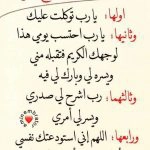 اولها: يا رب توكلت عليك
وثانيها: يا رب احتسب يومي هذا
لوجهك الكريم فتقبله مني
ويسره لي وبارك لي فيه
وثالثهما: رب اشرح لي صدري
ويسر لي أمري
ورابعها: اللهم إني استودعتك نفسي